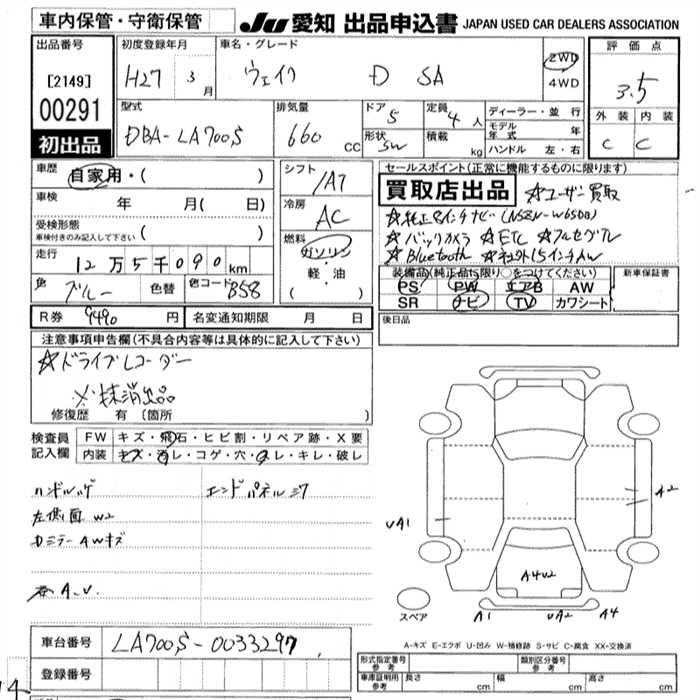 車内保管・守衛保管
JU 愛知 出品申込書 JAPAN USED CAR DEALERS ASSOCIATION
出品番号
[2149]
00291
初出品
初度登録年月
H27 3月
車名・グレード
ウェイク D SA
2WD
4WD
評価点
3.5
外装 内装
C C
型式
DBA-LA700S
排気量
660 cc
ドア 5
形状 SW
定員 4人
積載 kg
ディーラー・並行
モデル年式 年
ハンドル 左・右
車歴
自家用・( )
車検 年 月( 日)
受検形態
車検付きのみ記入して下さい ( )
走行
12万5千090km
色 ブルー 色替 色コード B58
シフト
IAT
冷房
AC
燃料
ガソリン
軽・油
( )
セールスポイント(正常に機能するものに限ります)
買取店出品 ☆ユーザー買取
☆純正8インチナビ(NSZN-W65DD)
☆バックカメラ ☆ETC ☆フルセグTV
☆Bluetooth ☆社外15インチAW
装備品(純正品に限り○をつけてください)
PS PW エアB AW
SR ナビ TV カワシート
新車保証書
後日品
R券 9490 円 名変通知期限 月 日
注意事項申告欄(不具合内容等は具体的に記入して下さい)
☆ドライブレコーダー
※抹消出品
修復歴 有〔箇所 〕
検査員
記入欄
FW キズ・飛石・ヒビ割・リペア跡・X要
内装 キズ・汚レ・コゲ・穴・スレ・キレ・破レ
ハンドルハゲ
左側面 W2
Dミラー AWキズ
A.U.
エンドパネル
A2
UA1
A4U2
A1 UA2 A4
スペア
A-キズ E-エクボ U-凹み W-補修跡 S-サビ C-腐食 XX-交換済
車台番号 LA700S-0033297
登録番号
形式指定番号
参考
類別区分番号
参考
車庫証明用
参考
長さ cm 幅 cm 高さ cm
14